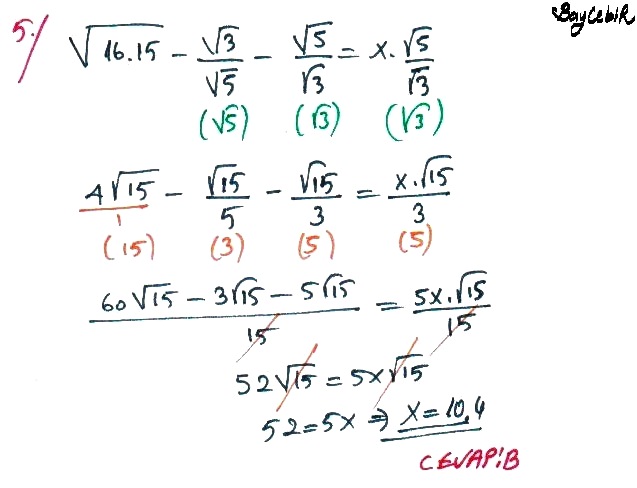 BayCebiR
5-/ √16.15 - √3/√5 - √5/√3 = x.√5/√3
(√5) (√3) (√3)
4√15/1 - √15/5 - √15/3 = x.√15/3
(15) (3) (5) (5)
60√15 - 3√15 - 5√15/15 = 5x.√15/15
52√15 = 5x√15
52=5x ⇒ x=10,4
CEVAP:B